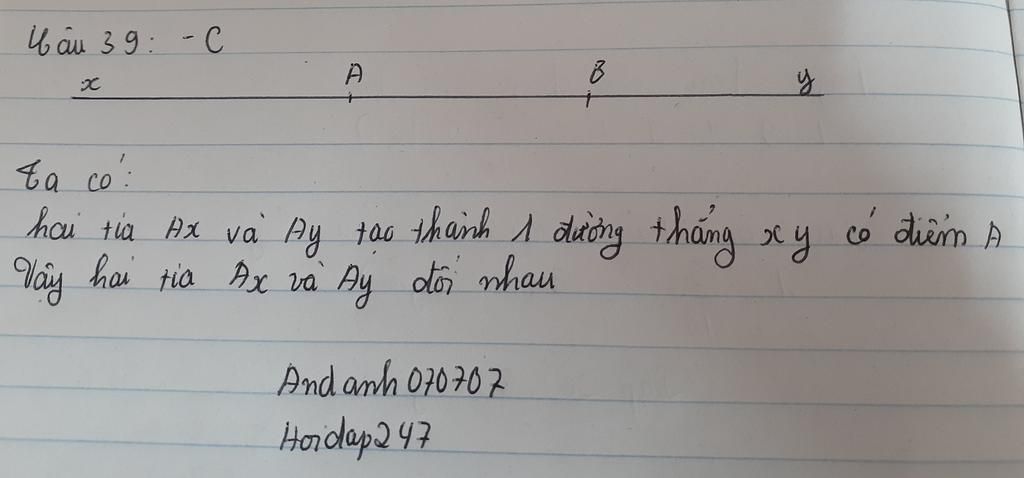 Câu 39: - C
x A B y
Ta có:
hai tia Ax và Ay tạo thành 1 đường thẳng xy có điểm A
Vậy hai tia Ax và Ay đối nhau
Andanh070707
Hoidap247